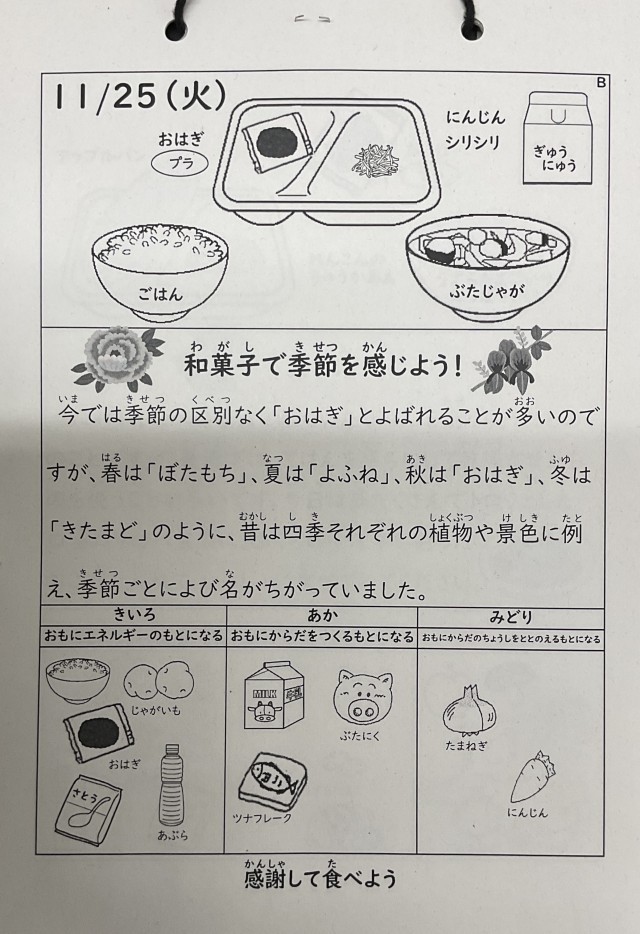 B
11/25(火)
おはぎ
プラ
にんじん
シリシリ
ぎゅう
にゅう
ごはん
ぶたじゃが
和菓子で季節を感じよう!
今では季節の区別なく「おはぎ」とよばれることが多いので
すが、春は「ぼたもち」、夏は「よふね」、秋は「おはぎ」、冬は
「きたまど」のように、昔は四季それぞれの植物や景色に例
え、季節ごとによび名がちがっていました。
きいろ
おもにエネルギーのもとになる
じゃがいも
おはぎ
さとう
あぶら
あか
おもにからだをつくるもとになる
MILK
牛乳
ぶたにく
ツナフレーク
みどり
おもにからだのちょうしをととのえるもとになる
たまねぎ
にんじん
感謝して食べよう